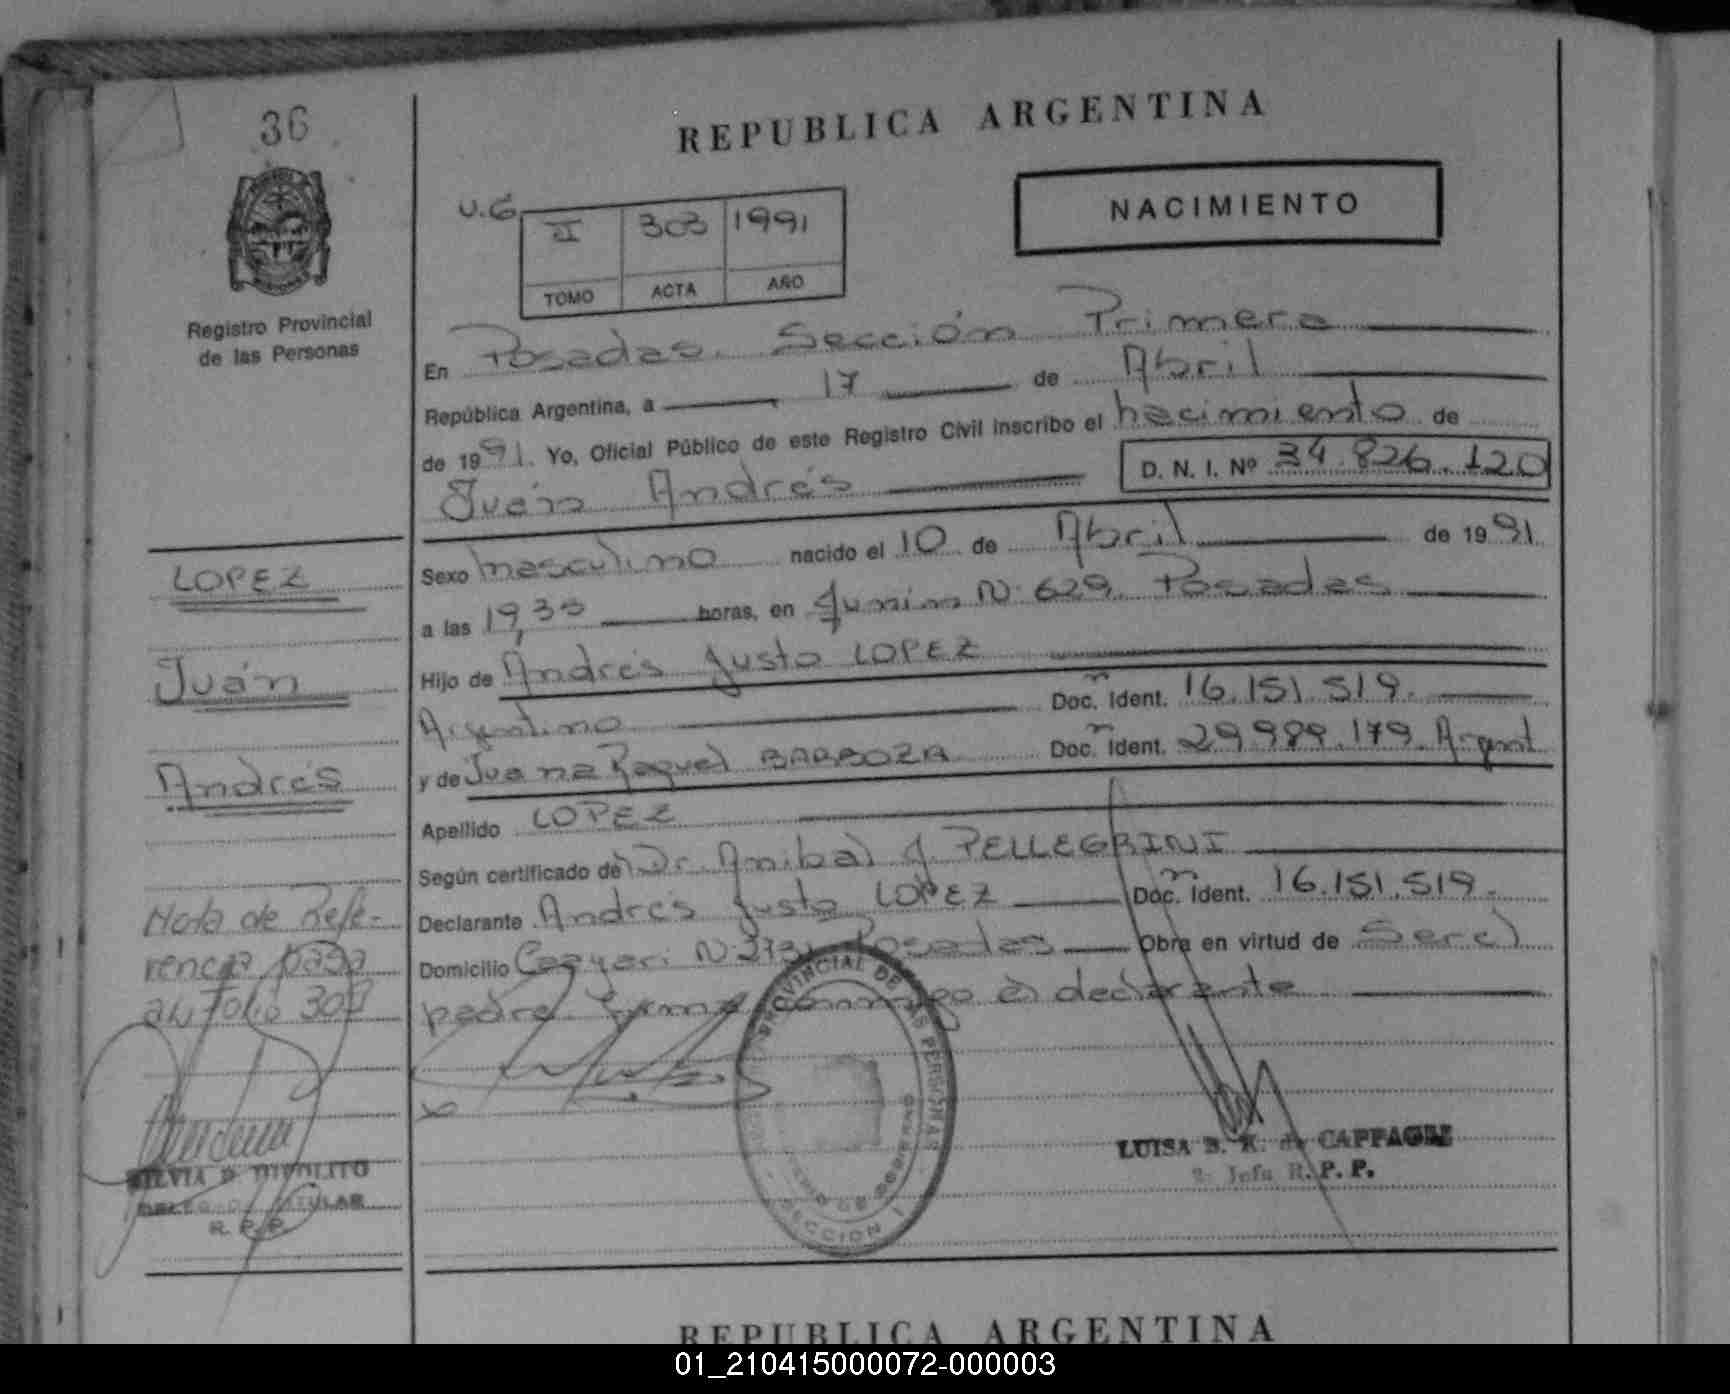 36
REPUBLICA ARGENTINA
NACIMIENTO
U.G.
II 303 1991
TOMO ACTA AÑO
Registro Provincial
de las Personas
En Posadas. Sección Primera
República Argentina, a 17 de Abril
de 1991. Yo, Oficial Público de este Registro Civil inscribo el nacimiento de
Juán Andrés D. N. I. Nº 34.826.120
LOPEZ
Juán
Andrés
Sexo masculino nacido el 10 de Abril de 1991
a las 19,35 horas, en Junin N. 629. Posadas
Hijo de Andrés Justo LOPEZ
Argentino Doc. Ident. 16.151.519.
y de Juana Raquel BARBOZA Doc. Ident. 29.989.179. Argent
Apellido LOPEZ
Según certificado de Dr. Anibal J. PELLEGRINI
Declarante Andrés Justo LOPEZ Doc. Ident. 16.151.519.
Domicilio N. Posadas Obra en virtud de Ser el
padre. Firma conmigo el declarante
Nota de Refe-
rencia pasa
al folio 303
PROVINCIAL DE LAS PERSONAS
SECCION 1
SILVIA D. HIPOLITO
TITULAR
R. P. P.
LUISA B. K. de CAPPAGLI
2: Jefa R. P. P.
REPUBLICA ARGENTINA
01_210415000072-000003